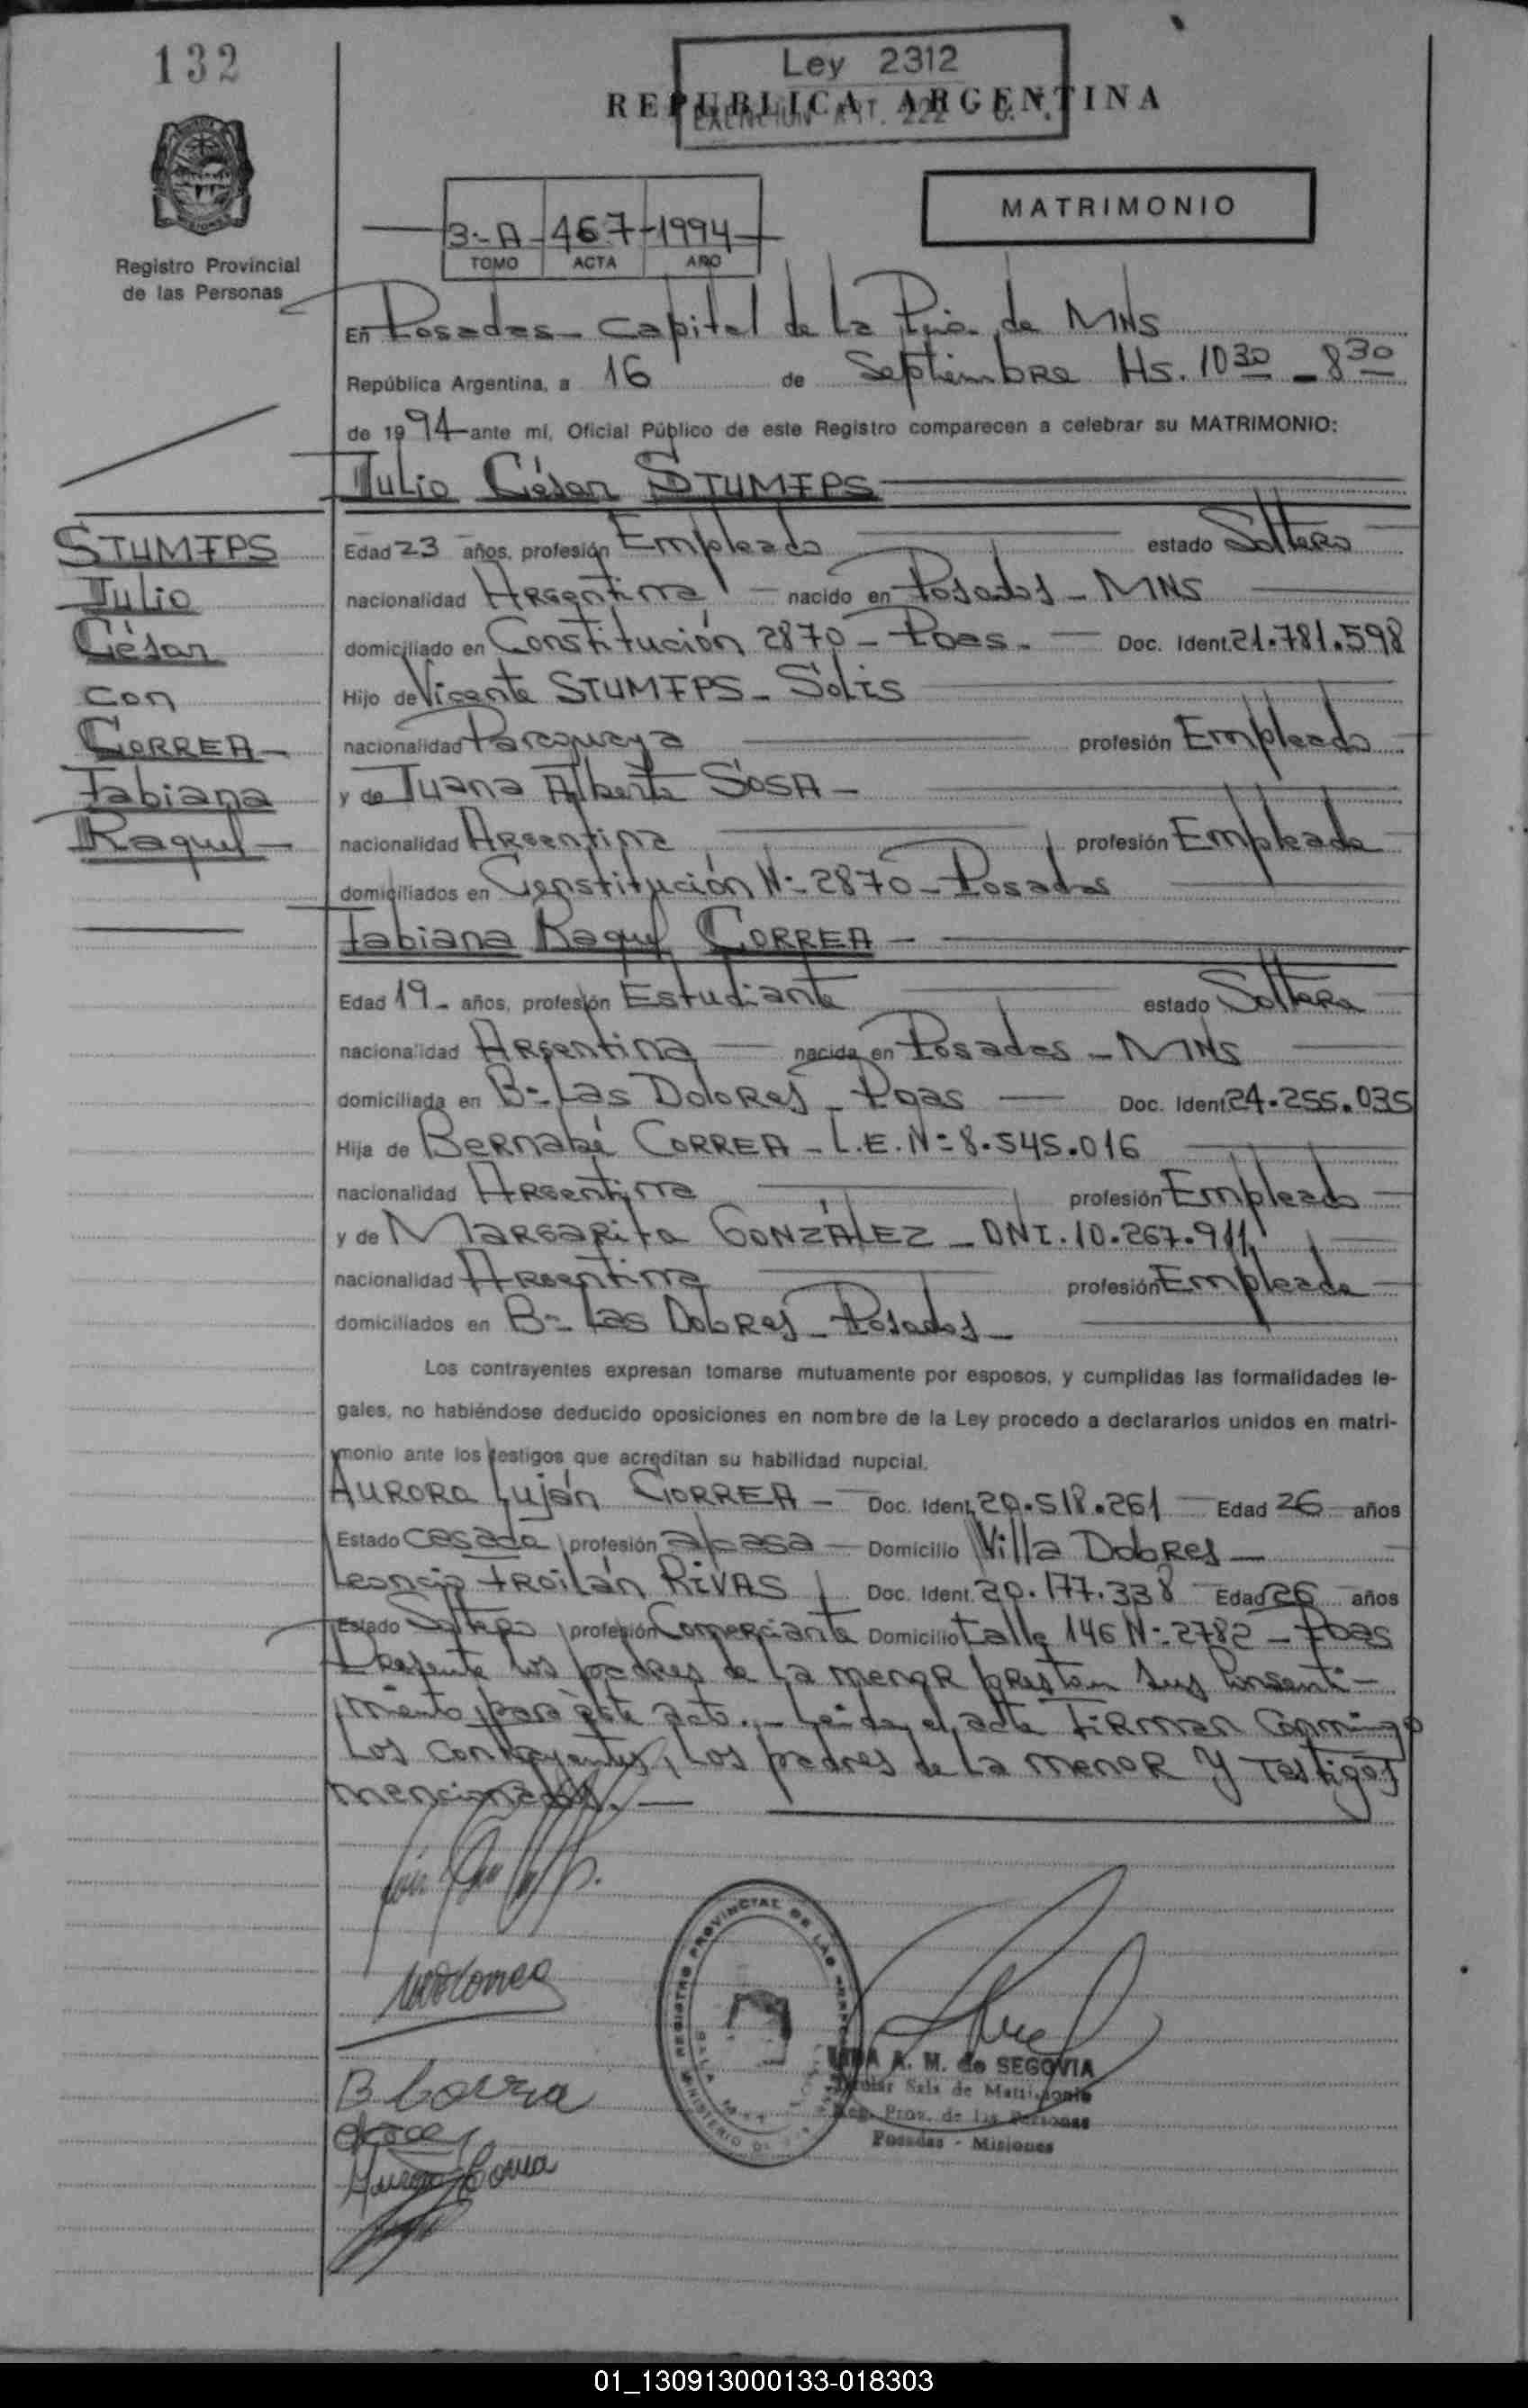 132
Ley 2312
REPUBLICA ARGENTINA
EXENCION ART. 222
MATRIMONIO
3-A 467 1994
TOMO ACTA AÑO
Registro Provincial
de las Personas
En Posadas - Capital de La Pcia. de MNS
República Argentina, a 16 de Septiembre Hs. 10 30 - 8 30
de 1994 ante mí, Oficial Público de este Registro comparecen a celebrar su MATRIMONIO:
Julio César STUMFPS
STUMFPS
Julio
César
con
CORREA
Fabiana
Raquel
Edad 23 años, profesión Empleado estado Soltero
nacionalidad Argentina nacido en Posadas - MNS
domiciliado en Constitución 2870 - Pdas. Doc. Ident. 21.781.598
Hijo de Vicente STUMFPS - Solis
nacionalidad Paraguaya profesión Empleado
y de Juana Alberta SOSA
nacionalidad Argentina profesión Empleada
domiciliados en Constitución N- 2870 - Posadas
Fabiana Raquel CORREA
Edad 19 años, profesión Estudiante estado Soltera
nacionalidad Argentina nacida en Posadas - MNS
domiciliada en B- Las Dolores - Pdas Doc. Ident 24.255.035
Hija de Bernabé CORREA - L.E. N- 8.545.016
nacionalidad Argentina profesión Empleado
y de Margarita GONZÁLEZ - DNI. 10.267.911
nacionalidad Argentina profesión Empleada
domiciliados en B- Las Dolores - Posadas
Los contrayentes expresan tomarse mutuamente por esposos, y cumplidas las formalidades le-
gales, no habiéndose deducido oposiciones en nombre de la Ley procedo a declararlos unidos en matri-
monio ante los testigos que acreditan su habilidad nupcial.
Aurora Luján CORREA - Doc. Ident. 20.518.261 Edad 26 años
Estado casada profesión a/casa Domicilio Villa Dolores
Leoncio Froilán RIVAS Doc. Ident. 20.177.338 Edad 26 años
Estado Soltero profesión Comerciante Domicilio Calle 146 N- 2782 - Pdas
Presente los padres de La menor prestan sus Consenti-
miento para este acto.- Leída el acta Firman Conmigo
Los contrayentes, Los padres de La menor y Testigos
mencionados.
B Correa
Aurora Correa
REGISTRO PROVINCIAL DE LAS
A. M. de SEGOVIA
Titular Sala de Matrimonio
Reg. Prov. de las Personas
Posadas - Misiones
01_130913000133-018303